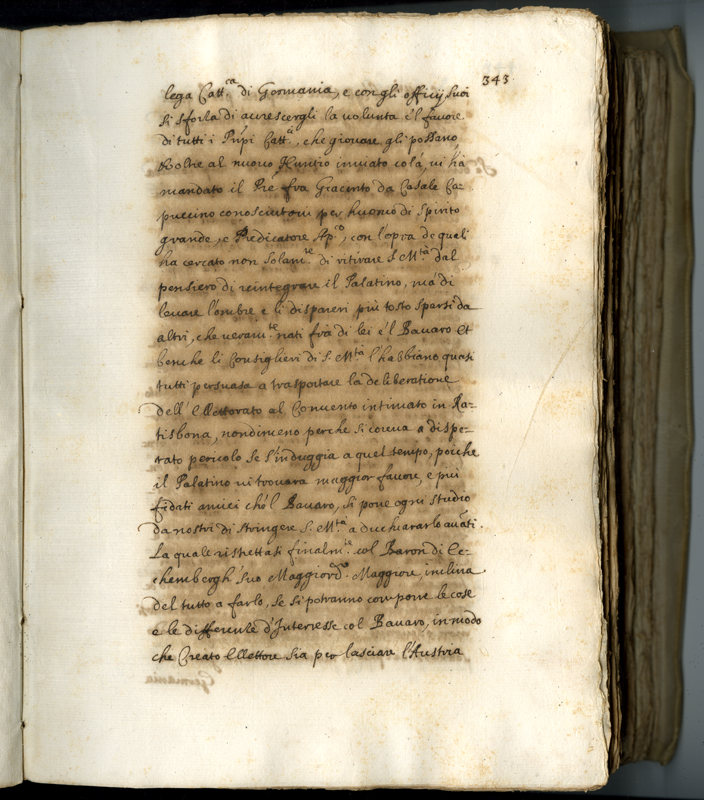 343
lega Catt.ca di Germania, e con gli officij suoi
si sforza di accrescergli la volunta e'l favore
di tutti i Prīpi Catt.ci, che giovare gli possano,
et oltre al nuovo Nuntio inviato colà, vi hà
mandato il Prē fra Giacinto da Casale Ca-
puccino conosciutoui per huomo di spirito
grande, e Predicatore Ap.co, con l'opra de quali
hà cercato non solam.te di ritirare S. M.tà dal
pensiero di reintegrare il Palatino, mà di
levare l'ombre e li dispareri più tosto sparsi da
altri, che veram.te nati frà di lei e'l Bavaro et
benche li Consiglieri di S. M.tà l'habbiano quasi
tutti persuasa a trasportare la deliberatione
dell'Elettorato al Convento intimato in Ra-
tisbona, nondimeno perche si correua a dispe-
rato pericolo se s'induggia a quel tempo, poiche
il Palatino vi trouara maggior favore, e più
fidati amici che'l Bavaro, si pone ogni studio
da nostri di stringere S. M.tà a dichiararlo auāti.
La quale ristrettasi finalm.te col Baron di Ec-
chembergh suo Maggiord.o Maggiore, inclina
del tutto a farlo, se si potranno comporre le cose
e le differenze d'Interesse col Bavaro, in modo
che Creato Elettore sia per lasciare l'Austria